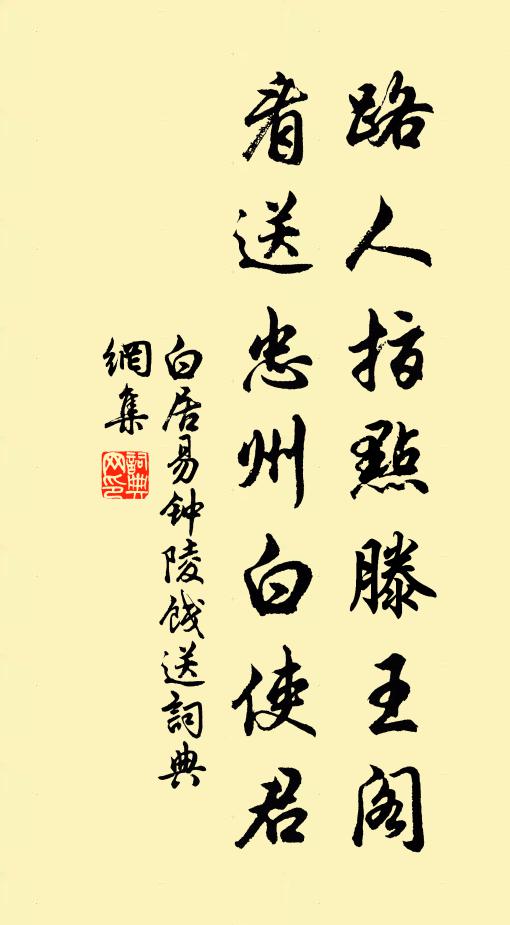 路人指點滕王阁
看送忠州白使君
白居易钟陵餞送詞典
網集
詞典网印